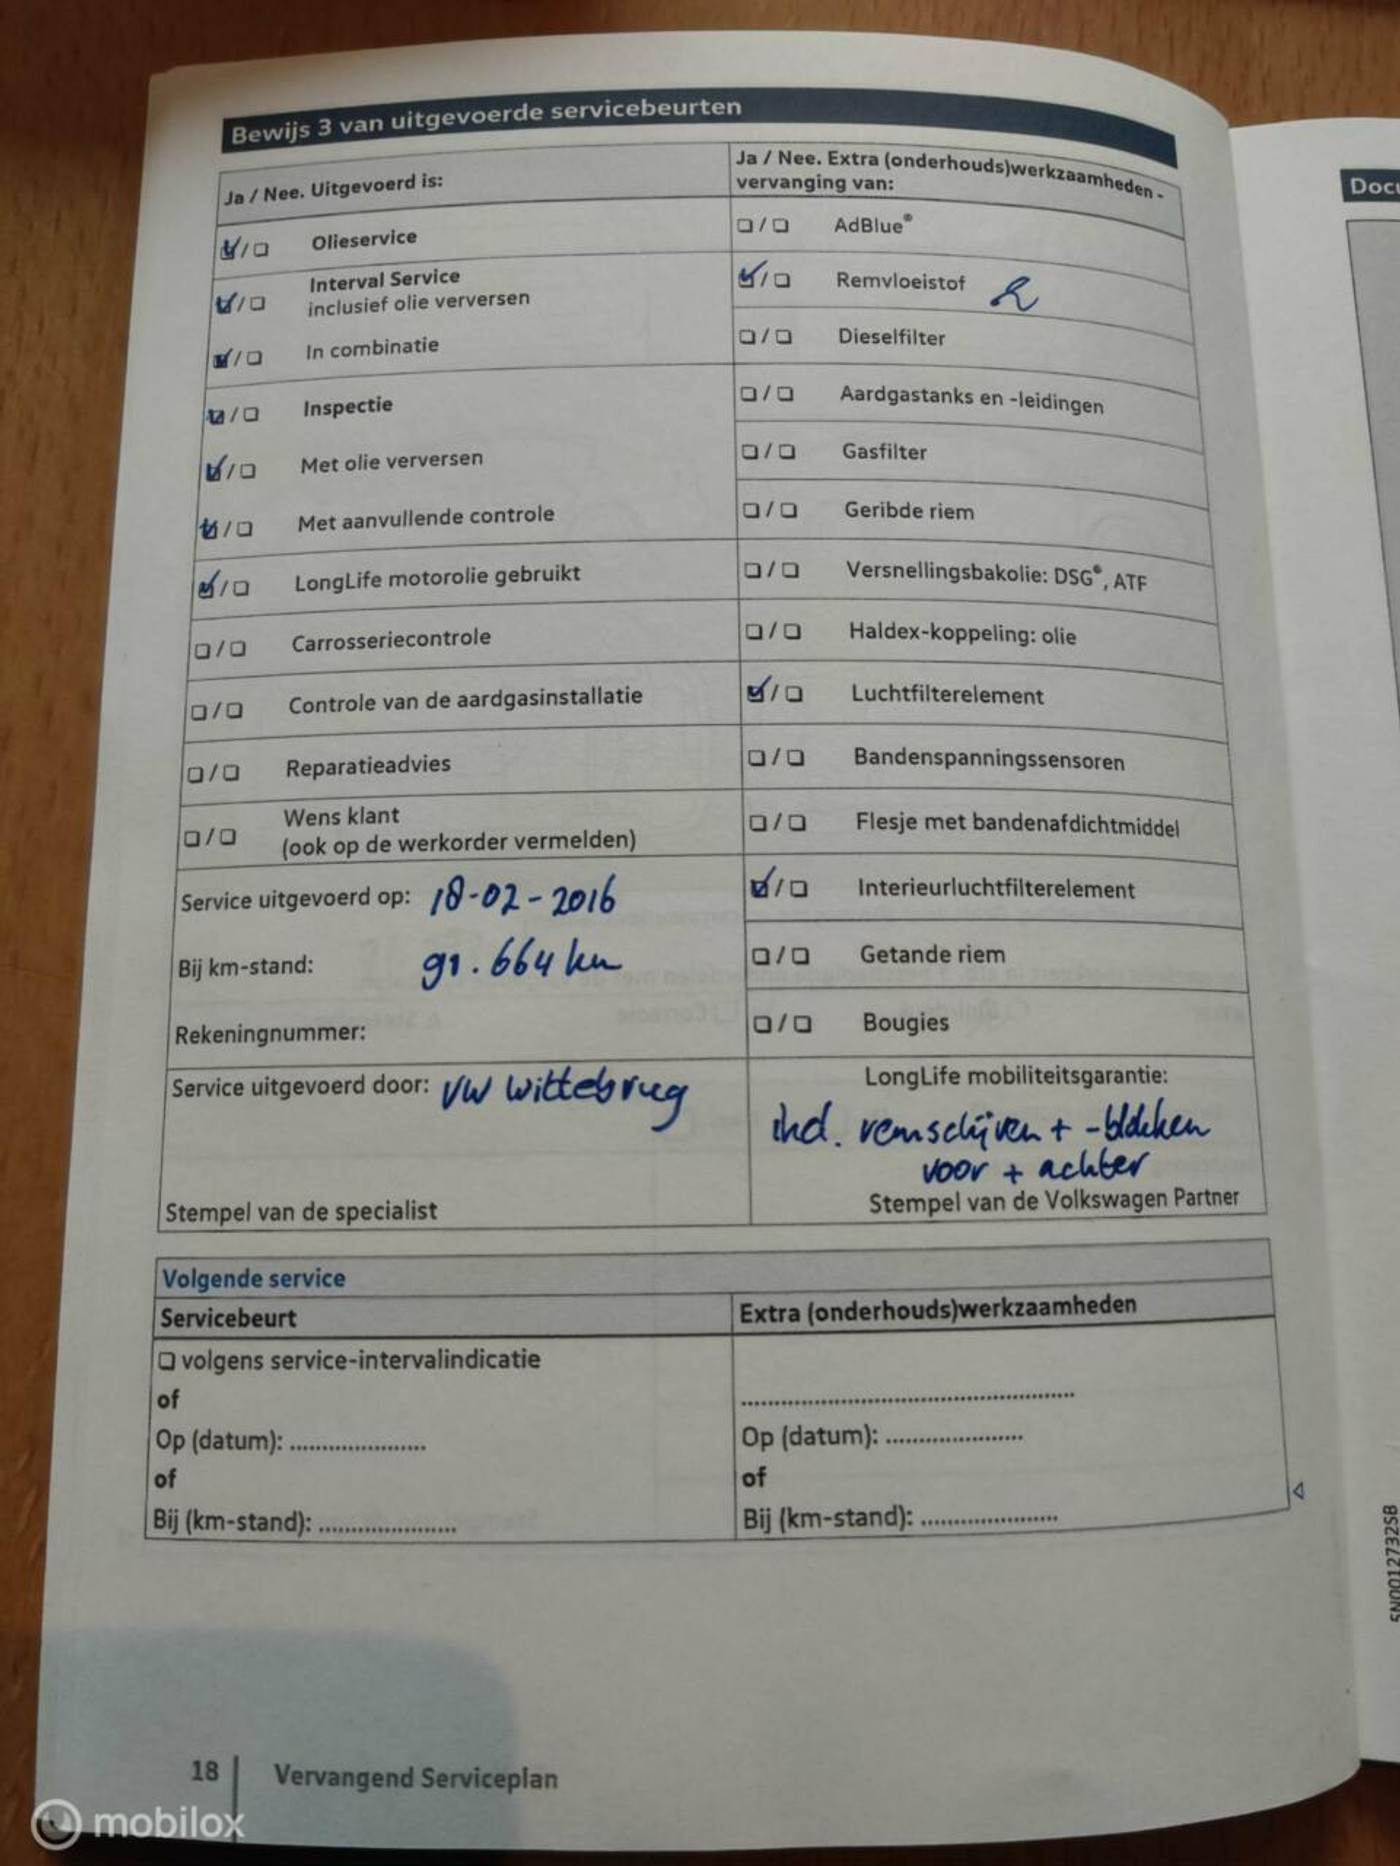 Bewijs 3 van uitgevoerde servicebeurten
Ja / Nee. Uitgevoerd is:
☑/☐ Olieservice
☑/☐ Interval Service
inclusief olie verversen
☑/☐ In combinatie
☑/☐ Inspectie
☑/☐ Met olie verversen
☑/☐ Met aanvullende controle
☑/☐ LongLife motorolie gebruikt
☐/☐ Carrosseriecontrole
☐/☐ Controle van de aardgasinstallatie
☐/☐ Reparatieadvies
☐/☐ Wens klant
(ook op de werkorder vermelden)
Service uitgevoerd op: 18-02-2016
Bij km-stand: 91.664 km
Rekeningnummer:
Service uitgevoerd door: VW Wittebrug
Stempel van de specialist
Ja / Nee. Extra (onderhouds)werkzaamheden -
vervanging van:
☐/☐ AdBlue®
☑/☐ Remvloeistof
☐/☐ Dieselfilter
☐/☐ Aardgastanks en -leidingen
☐/☐ Gasfilter
☐/☐ Geribde riem
☐/☐ Versnellingsbakolie: DSG®, ATF
☐/☐ Haldex-koppeling: olie
☑/☐ Luchtfilterelement
☐/☐ Bandenspanningssensoren
☐/☐ Flesje met bandenafdichtmiddel
☑/☐ Interieurluchtfilterelement
☐/☐ Getande riem
☐/☐ Bougies
LongLife mobiliteitsgarantie:
incl. remschijven + -blokken
voor + achter
Stempel van de Volkswagen Partner
Volgende service
Servicebeurt
☐ volgens service-intervalindicatie
of
Op (datum): .....................
of
Bij (km-stand): .....................
Extra (onderhouds)werkzaamheden
...................................................
Op (datum): .....................
of
Bij (km-stand): .....................
18 Vervangend Serviceplan
5N0012732SB
mobilox